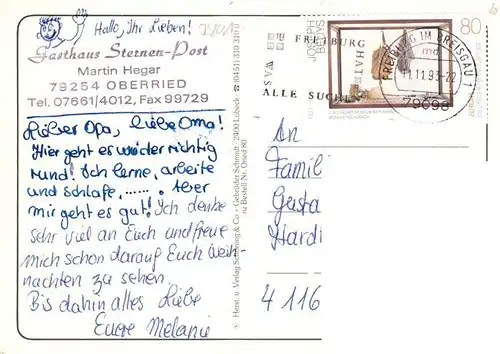 Hallo, Ihr Lieben!
Gasthaus Sternen-Post
Martin Hegar
79254 OBERRIED
Tel. 07661/4012, Fax 99729
Lieber Opa, liebe Oma!
Hier geht es wieder richtig
rund! Ich lerne, arbeite
und schlafe, ...... Aber
mir geht es gut! Ich denke
sehr viel an Euch und freue
mich schon darauf Euch Weih-
nachten zu sehen.
Bis dahin alles Liebe
Eure Melanie
Gebrüder Schmidt, 2400 Lübeck
JOSEPH
BEUYS
80
FREIBURG
HAT
WAS
ALLE SUCHEN
FREIBURG IM BREISGAU 1
md
11.11.93-22
79098
An
Famil
Gasta
Hardi
4116